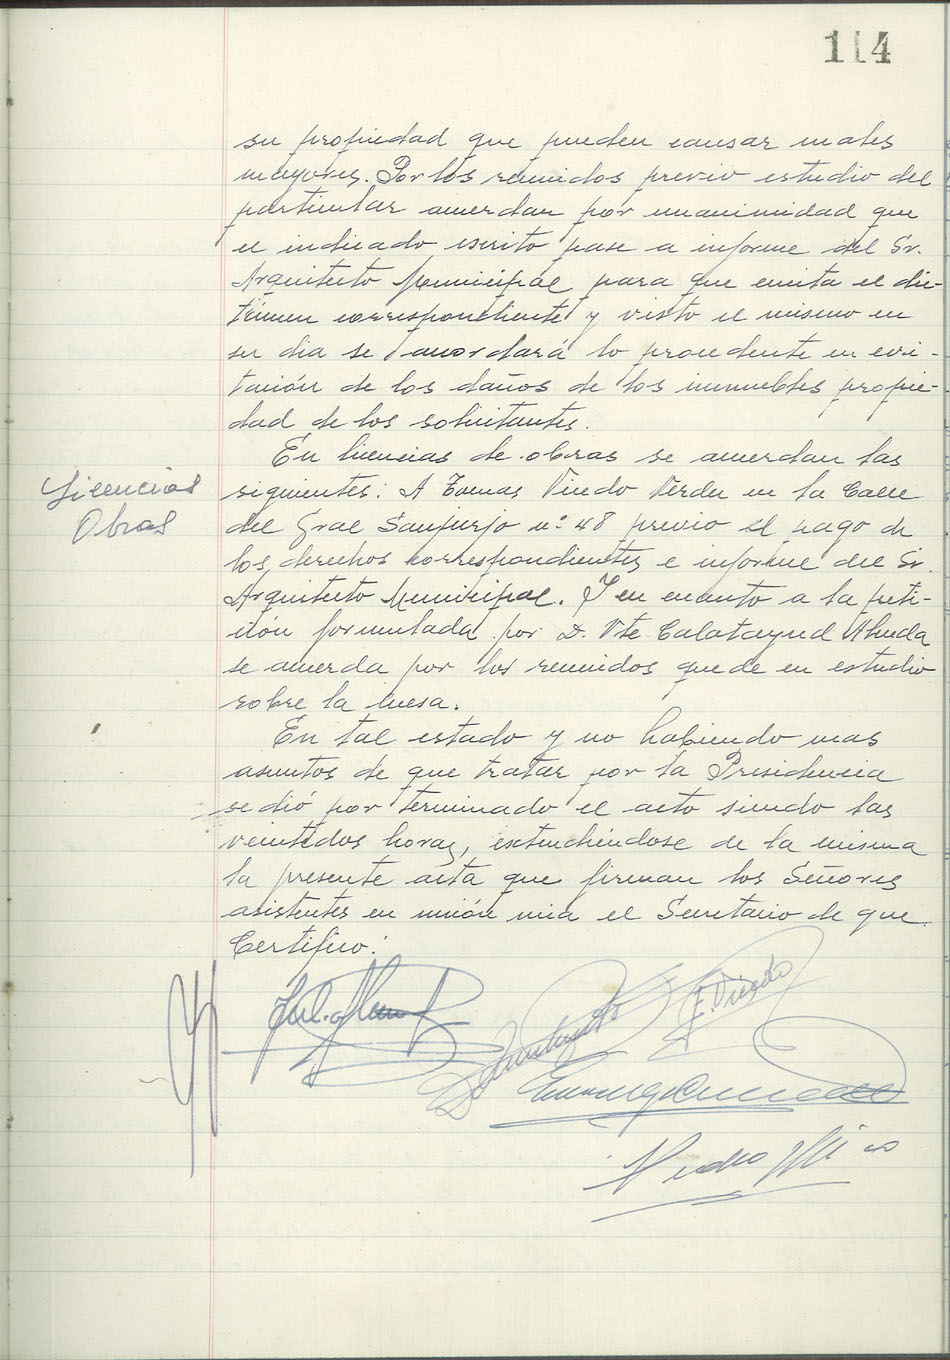 114
su propiedad que pueden causar males
mayores. Por los reunidos previo estudio del
particular acuerdan por unanimidad que
el indicado escrito pase a informe del Sr.
Arquitecto Municipal para que emita el dic-
támen correspondiente y visto el mismo en
su dia se acordará lo procedente en evi-
tación de los daños de los inmuebles propie-
dad de los solicitantes.
Licencias
Obras
En licencias de obras se acuerdan las
siguientes: A Tomas Pindo Verdu en la Calle
del Gral Sanjurjo nº 48 previo el pago de
los derechos correspondientes e informe del Sr.
Arquitecto Municipal. Y en cuanto a la peti-
ción formulada por D. Vte Calatayud
se acuerda por los reunidos quede en estudio
sobre la mesa.
En tal estado y no habiendo mas
asuntos de que tratar por la Presidencia
se dió por terminado el acto siendo las
veintidos horas, extendiéndose de la misma
la presente acta que firman los Señores
asistentes en unión mia el Secretario de que
Certifico: